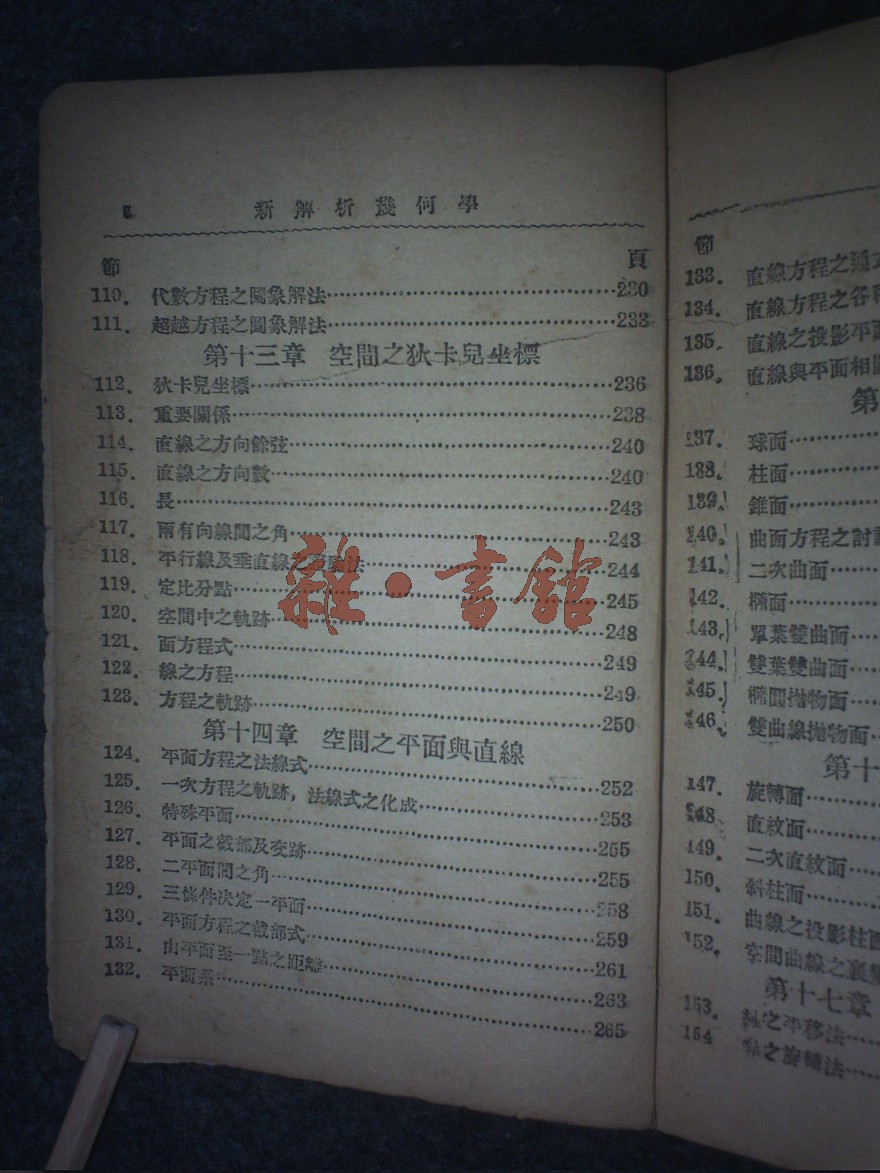 新解析幾何學
節 頁
110. 代數方程之圖象解法 230
111. 超越方程之圖象解法 233
第十三章 空間之狄卡兒坐標
112. 狄卡兒坐標 236
113. 重要關係 238
114. 直線之方向餘弦 240
115. 直線之方向數 240
116. 長 243
117. 兩有向線間之角 243
118. 平行線及垂直線之 法 244
119. 定比分點 245
120. 空間中之軌跡 248
121. 面方程式 249
122. 線之方程 249
123. 方程之軌跡 250
第十四章 空間之平面與直線
124. 平面方程之法線式 252
125. 一次方程之軌跡，法線式之化成 253
126. 特殊平面 255
127. 平面之截部及交跡 255
128. 二平面間之角 258
129. 三條件決定一平面 259
130. 平面方程之截部式 261
131. 由平面至一點之距離 263
132. 平面系 265
雜·書館
節
133. 直線方程之通式
134. 直線方程之各種
135. 直線之投影平面
136. 直線與平面相關
第
137. 球面
138. 柱面
139. 錐面
140. 曲面方程之討論
141. 二次曲面
142. 橢面
143. 單葉雙曲面
144. 雙葉雙曲面
145. 橢圓拋物面
146. 雙曲線拋物面
第十
147. 旋轉面
148. 直紋面
149. 二次直紋面
150. 斜柱面
151. 曲線之投影柱面
152. 空間曲線之
第十七章
153. 軸之平移法
154 軸之旋轉法